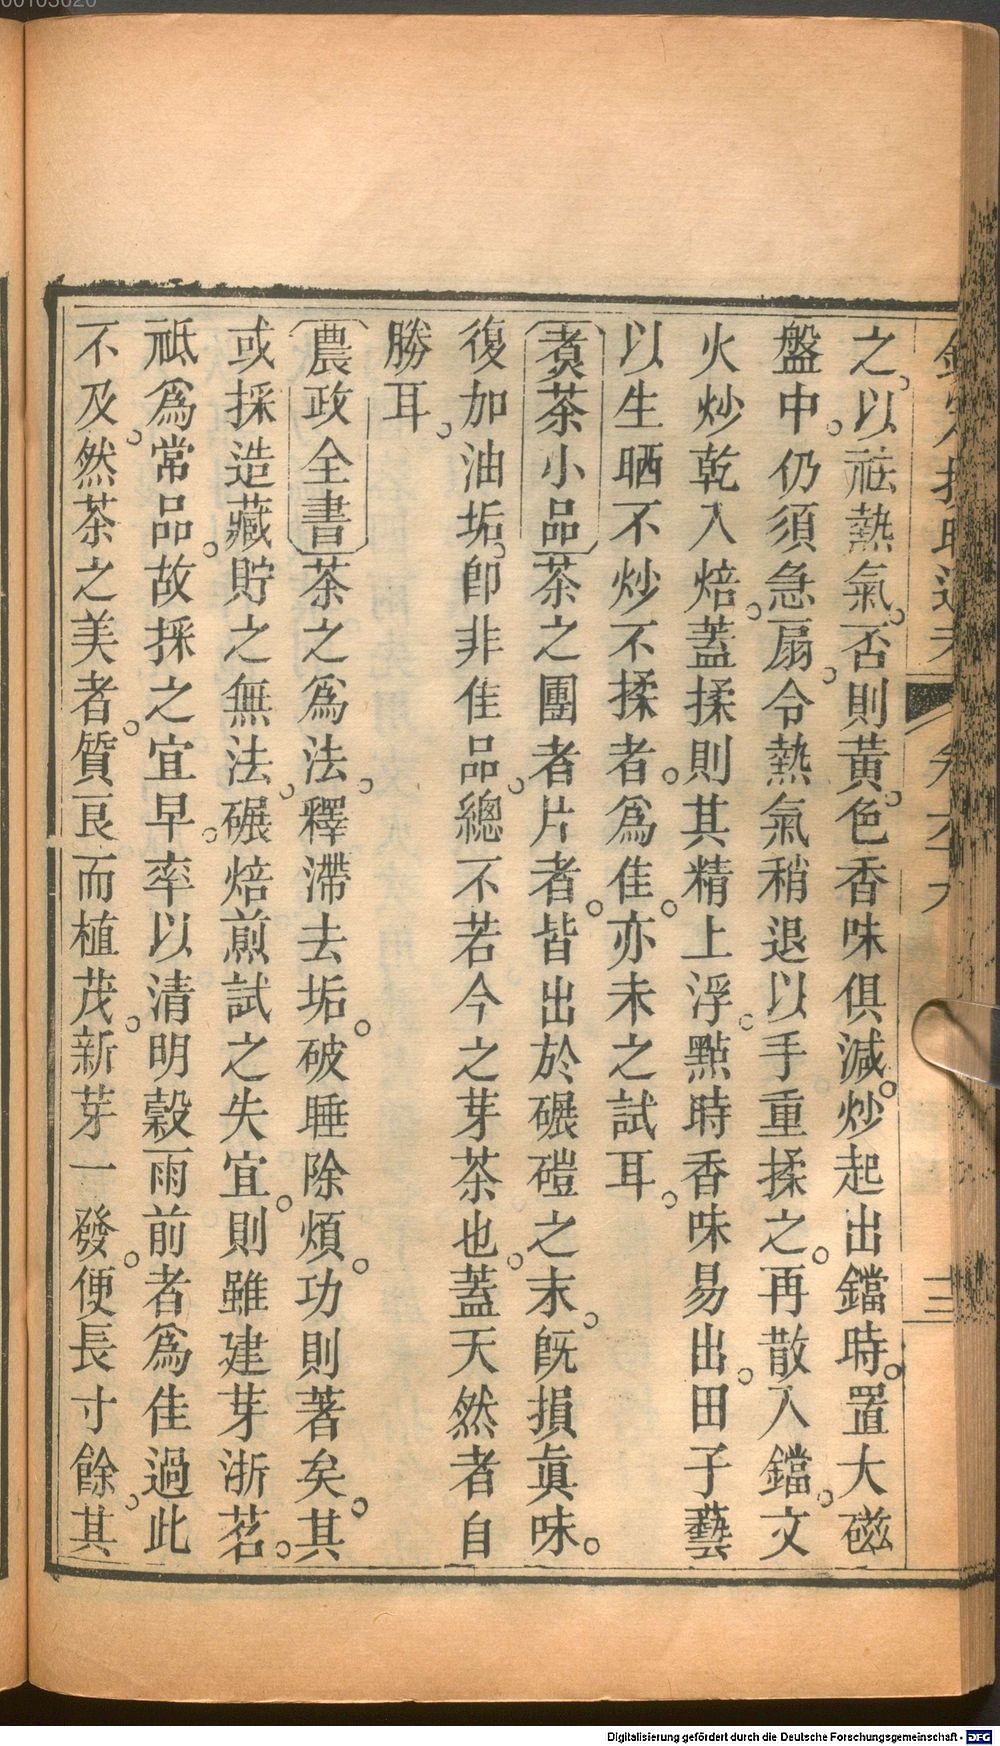 之。以祛熱氣。否則黃。色香味俱減。炒起出鐺時。置大磁
盤中。仍須急扇。令熱氣稍退以手重揉之。再散入鐺。文
火炒乾入焙。蓋揉則其精上浮。點時香味易出。田子藝
以生晒不炒不揉者。爲佳。亦未之試耳。
煑茶小品茶之團者片者。皆出於碾磑之末。旣損眞味。
復加油垢。卽非佳品。總不若今之芽茶也。蓋天然者自
勝耳。
農政全書茶之爲法。釋滯去垢。破睡除煩。功則著矣。其
或採造藏貯之無法。碾焙煎試之失宜。則雖建芽浙茗。
祗爲常品。故採之宜早。率以清明穀雨前者爲佳過此
不及。然茶之美者。質良而植茂。新芽一發。便長寸餘。其
十三
00103020
Digitalisierung gefördert durch die Deutsche Forschungsgemeinschaft - DFG